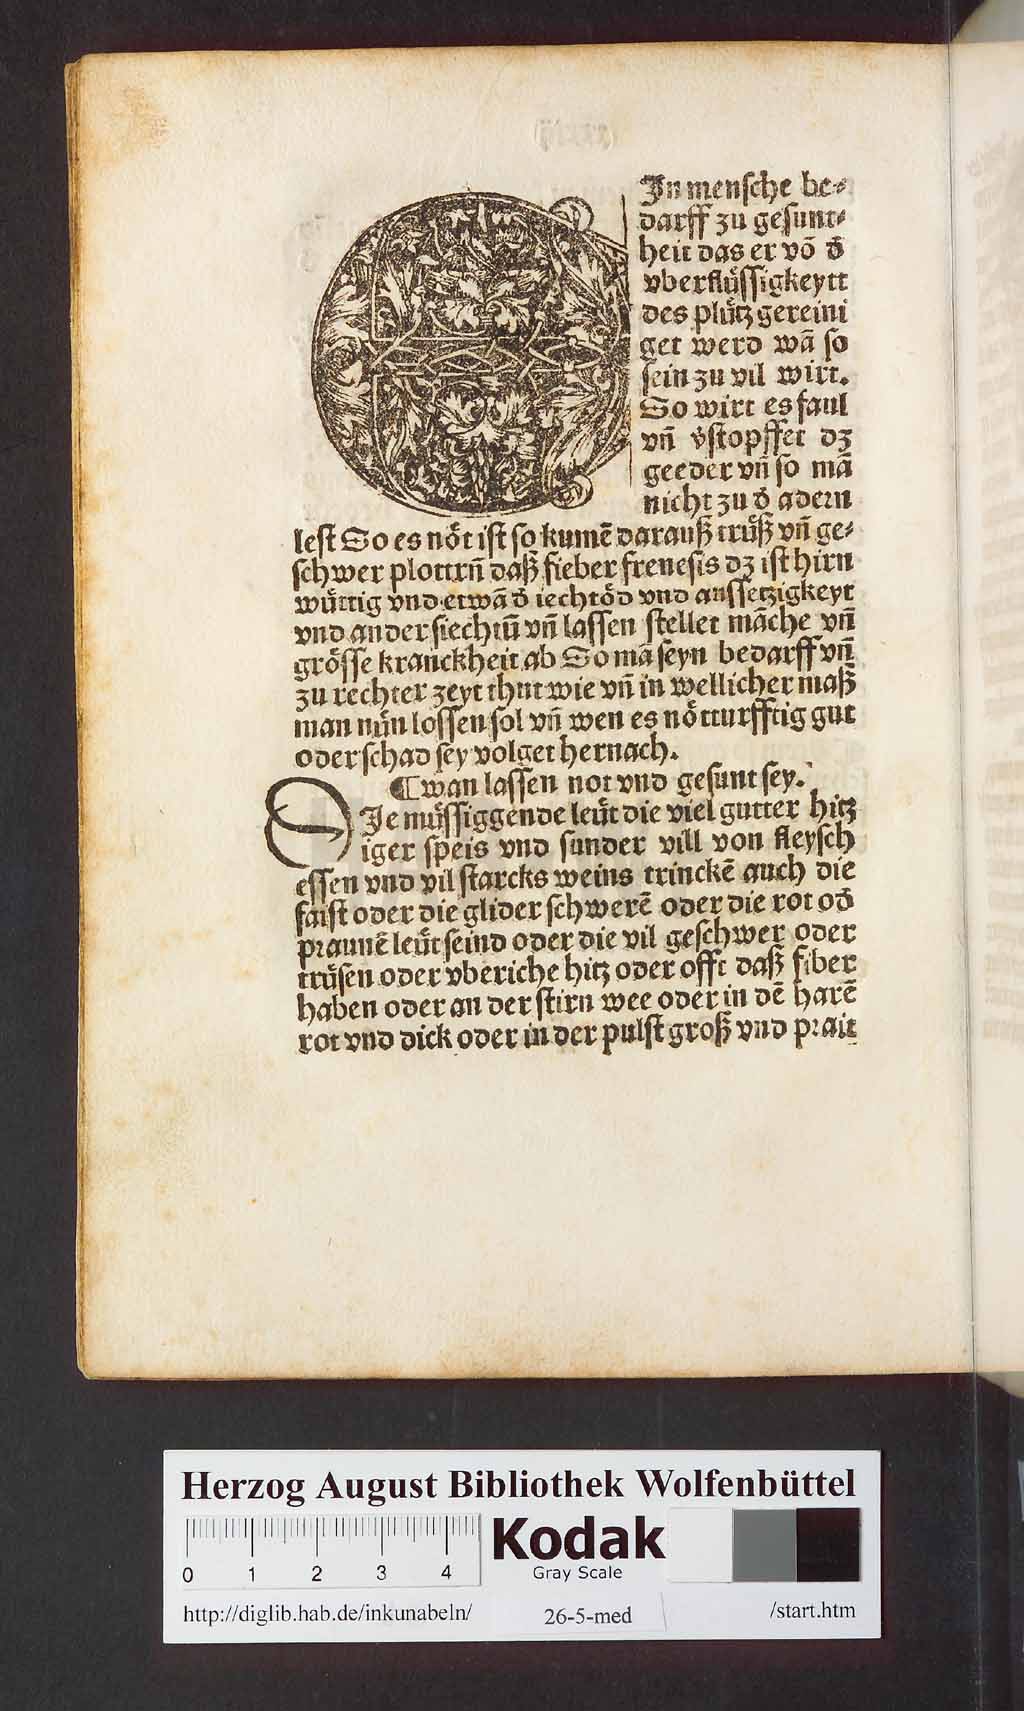 EJn mensche be⸗
darff zu gesunt⸗
heit das er võ d̕
vberflüssigkeytt
des plütz gereini
get werd wã so
sein zu vil wirt.
So wirt es faul
vñ v̕stopffet dz
geeder vñ so mã
nicht zu d̕ adern
lest So es nöt ist so kumẽ darauß trüß vñ ge⸗
schwer plottrñ daß fieber frenesis dz ist hirn
wüttig vnd etwã d̕ iechtöd vnd aussetzigkeyt
vnd ander siechtũ vñ lassen stellet mãche vñ
grösse kranckheit ab So mã seyn bedarff vñ
zu rechter zeyt thut wie vñ in wellicher maß
man nün lossen sol vñ wen es nötturfftig gut
oder schad sey volget hernach.
¶ wan lassen not vnd gesunt sey.
DJe müssiggende leüt die viel gutter hitz
iger speis vnd sunder vill von fleysch
essen vnd vil starcks weins trinckẽ auch die
faist oder die glider schwerẽ oder die rot od̕
praunẽ leüt seind oder die vil geschwer oder
trüsen oder vberiche hitz oder offt daß fiber
haben oder an der stirn wee oder in dẽ harẽ
rot vnd dick oder in der pulst groß vnd prait
Herzog August Bibliothek Wolfenbüttel
0 1 2 3 4
Kodak
Gray Scale
http://diglib.hab.de/inkunabeln/ 26-5-med /start.htm